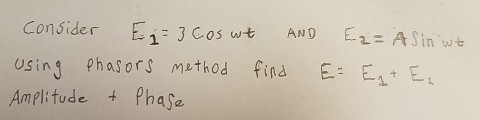 Consider E1 = 3 Cos wt AND E2 = A Sin wt
Using Phasors method find E = E1 + E2
Amplitude + Phase